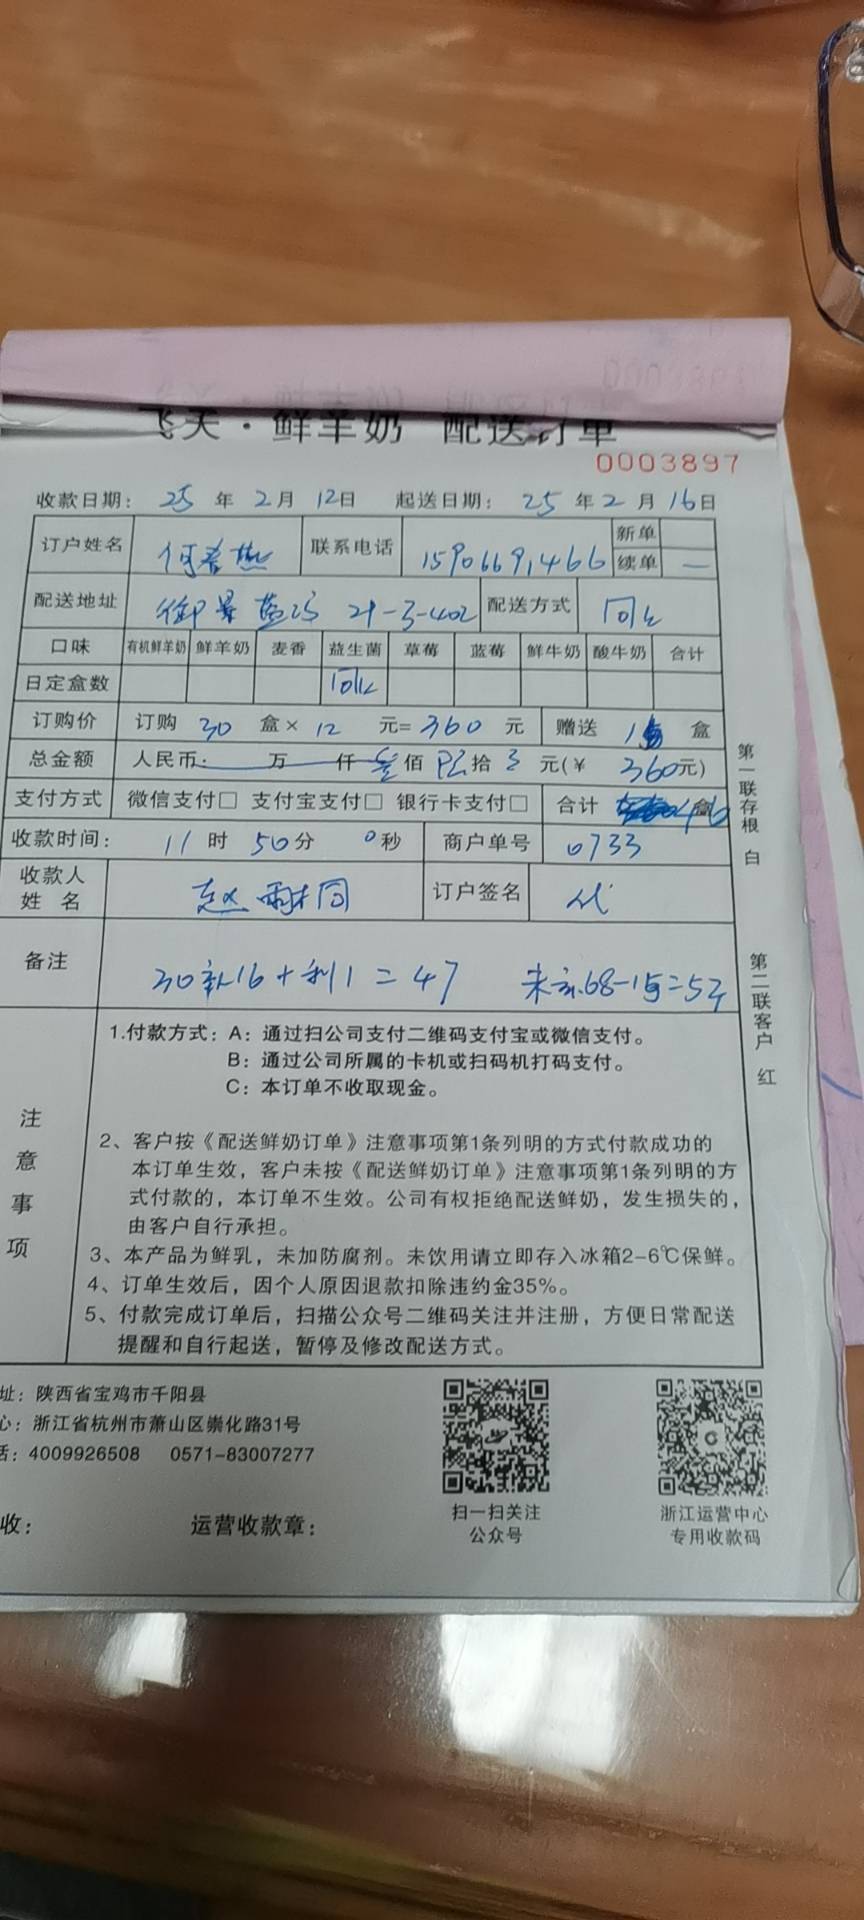 飞天·鲜羊奶 配送订单
0003897
收款日期: 25 年 2 月 12日 起送日期: 25 年 2 月 16日
订户姓名 联系电话 15906691466 新单
续单 —
配送地址 御景蓝湾 21-3-402 配送方式 同上
口味 有机鲜羊奶 鲜羊奶 麦香 益生菌 草莓 蓝莓 鲜牛奶 酸牛奶 合计
日定盒数 同上
订购价 订购 30 盒× 12 元= 360 元 赠送 盒
总金额 人民币: 万 仟 叁佰 陆拾 元(¥ 360元)
支付方式 微信支付□ 支付宝支付□ 银行卡支付□ 合计 46
收款时间: 11 时 50分 0秒 商户单号 0733
收款人
姓 名 订户签名 代
备注 30 16 + 利1 = 47
注意事项
1.付款方式: A: 通过扫公司支付二维码支付宝或微信支付。
B: 通过公司所属的卡机或扫码机打码支付。
C: 本订单不收取现金。
2、客户按《配送鲜奶订单》注意事项第1条列明的方式付款成功的
本订单生效，客户未按《配送鲜奶订单》注意事项第1条列明的方
式付款的，本订单不生效。公司有权拒绝配送鲜奶，发生损失的，
由客户自行承担。
3、本产品为鲜乳，未加防腐剂。未饮用请立即存入冰箱2-6℃保鲜。
4、订单生效后，因个人原因退款扣除违约金35%。
5、付款完成订单后，扫描公众号二维码关注并注册，方便日常配送
提醒和自行起送，暂停及修改配送方式。
第一联存根 白
第二联客户 红
址: 陕西省宝鸡市千阳县
心: 浙江省杭州市萧山区崇化路31号
话: 4009926508 0571-83007277
收: 运营收款章:
扫一扫关注
公众号
浙江运营中心
专用收款码